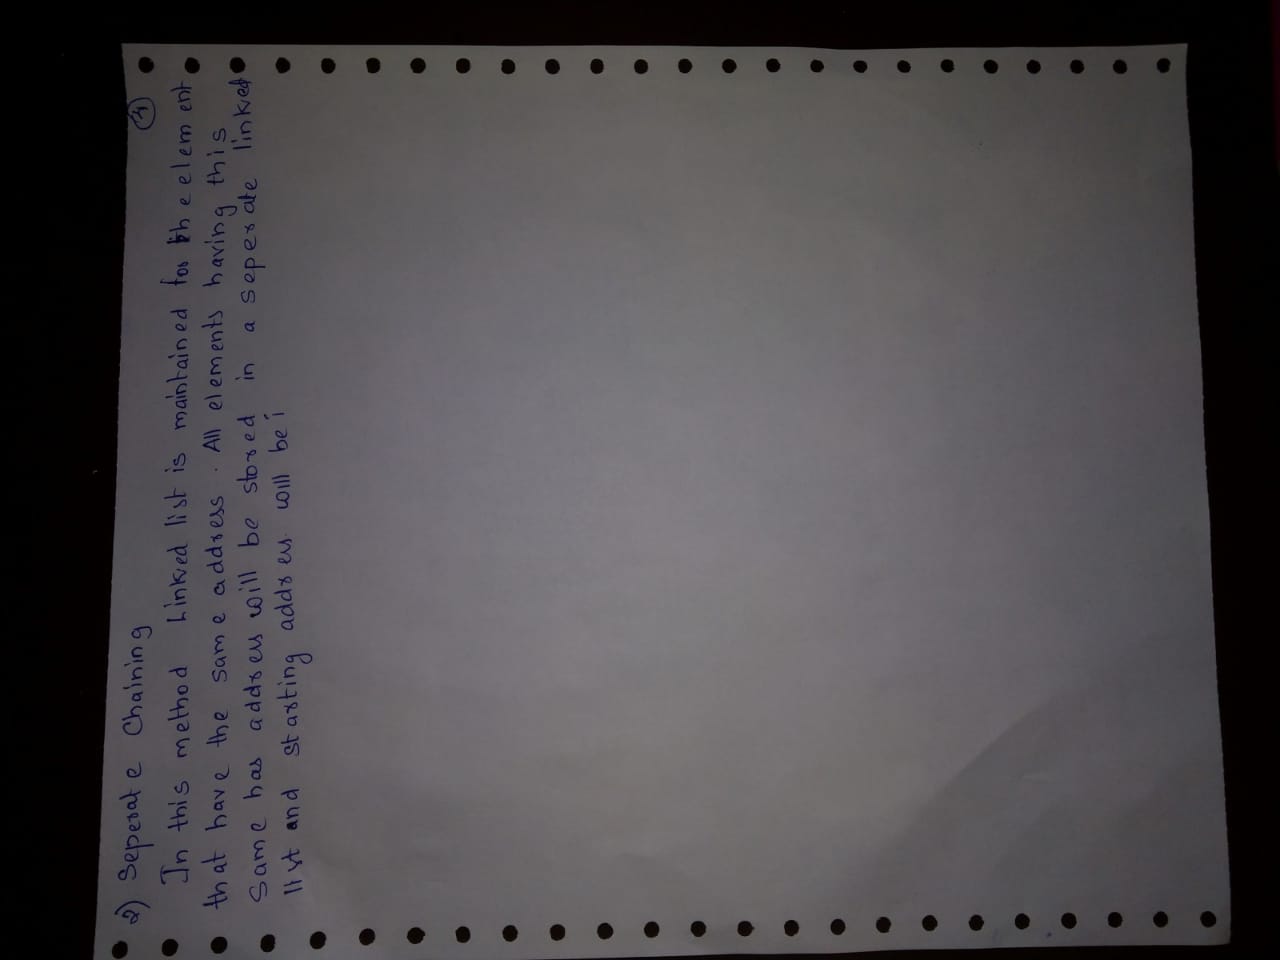 2) Seperate Chaining
In this method Linked list is maintained for the element
that have the same address. All elements having this
Same has address will be stored in a seperate linked
list and starting address will be i